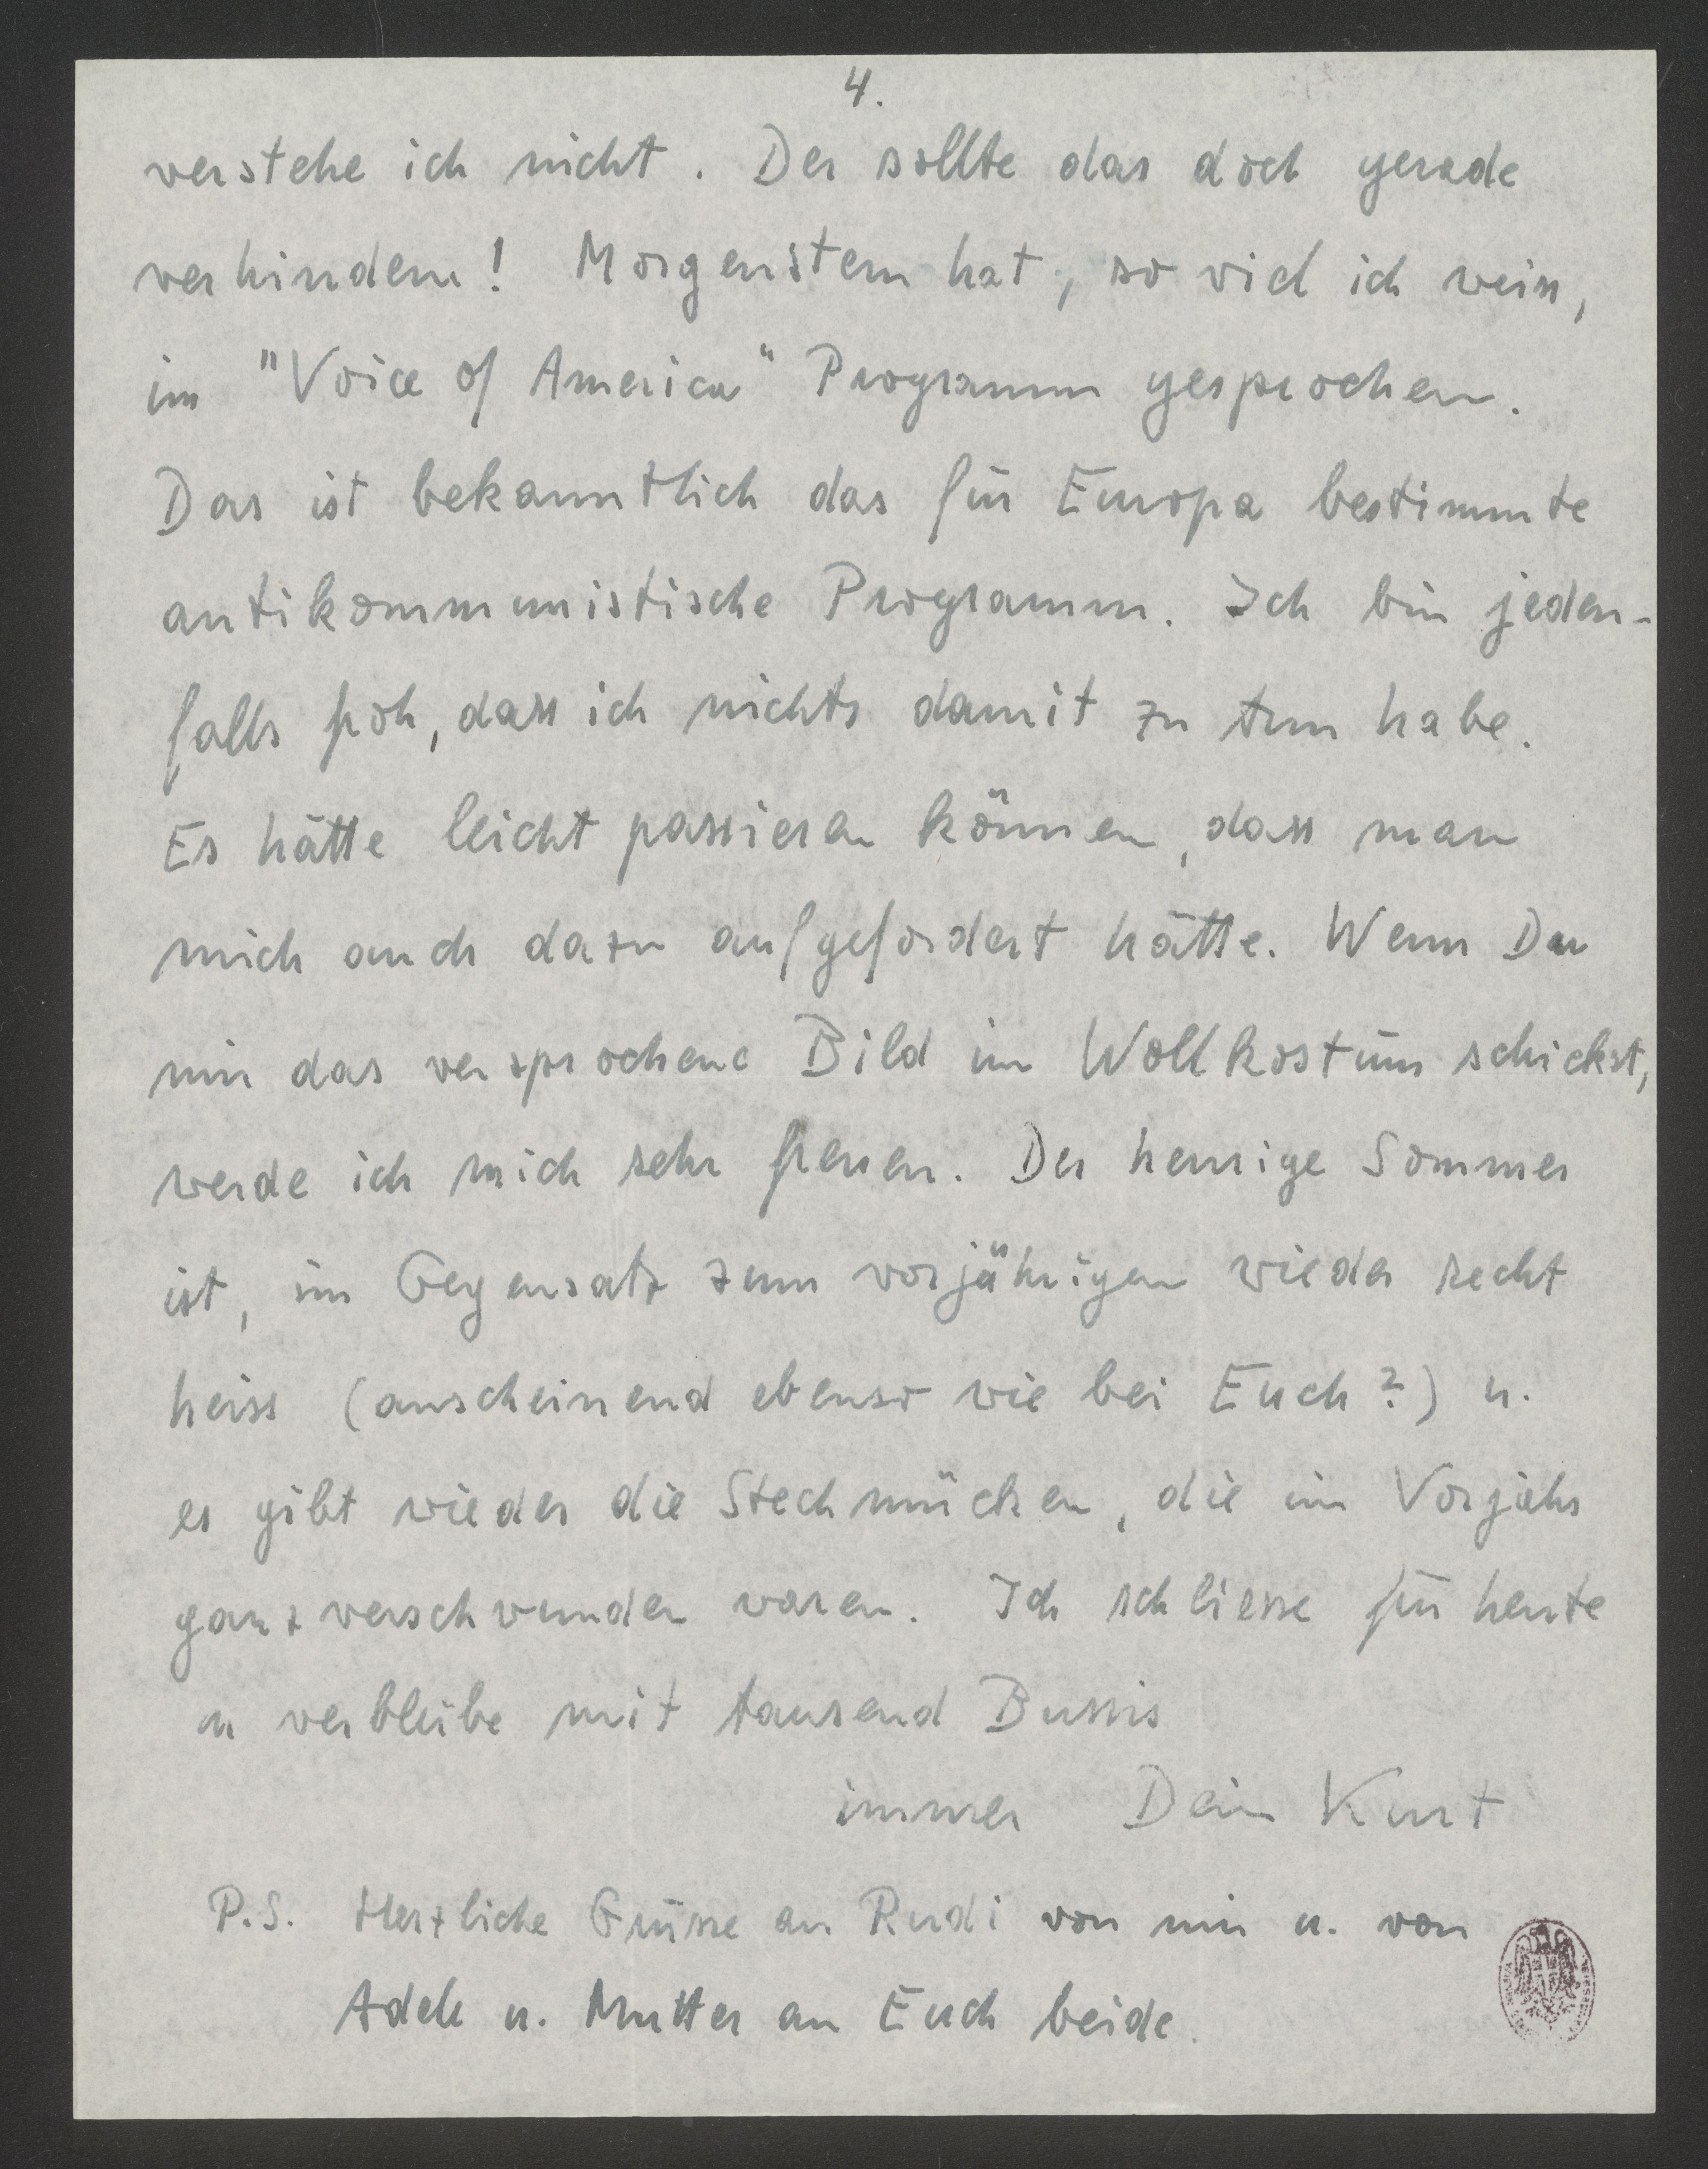 4.
verstehe ich nicht. Der sollte das doch gerade
verhindern! Morgenstern hat, so viel ich weiss,
im "Voice of America" Programm gesprochen.
Das ist bekanntlich das für Europa bestimmte
antikommunistische Programm. Ich bin jeden-
falls froh, dass ich nichts damit zu tun habe.
Es hätte leicht passieren können, dass man
mich auch dazu aufgefordert hätte. Wenn Du
mir das versprochene Bild im Wollkostüm schickst,
werde ich mich sehr freuen. Der heurige Sommer
ist, im Gegensatz zum vorjährigen wieder recht
heiss (anscheinend ebenso wie bei Euch?) u.
es gibt wieder die Stechmücken, die im Vorjahr
ganz verschwunden waren. Ich schliesse für heute
u verbleibe mit tausend Bussis
immer Dein Kurt
P.S. Herzliche Grüsse an Rudi von mir u. von
Adele u. Mutter an Euch beide.